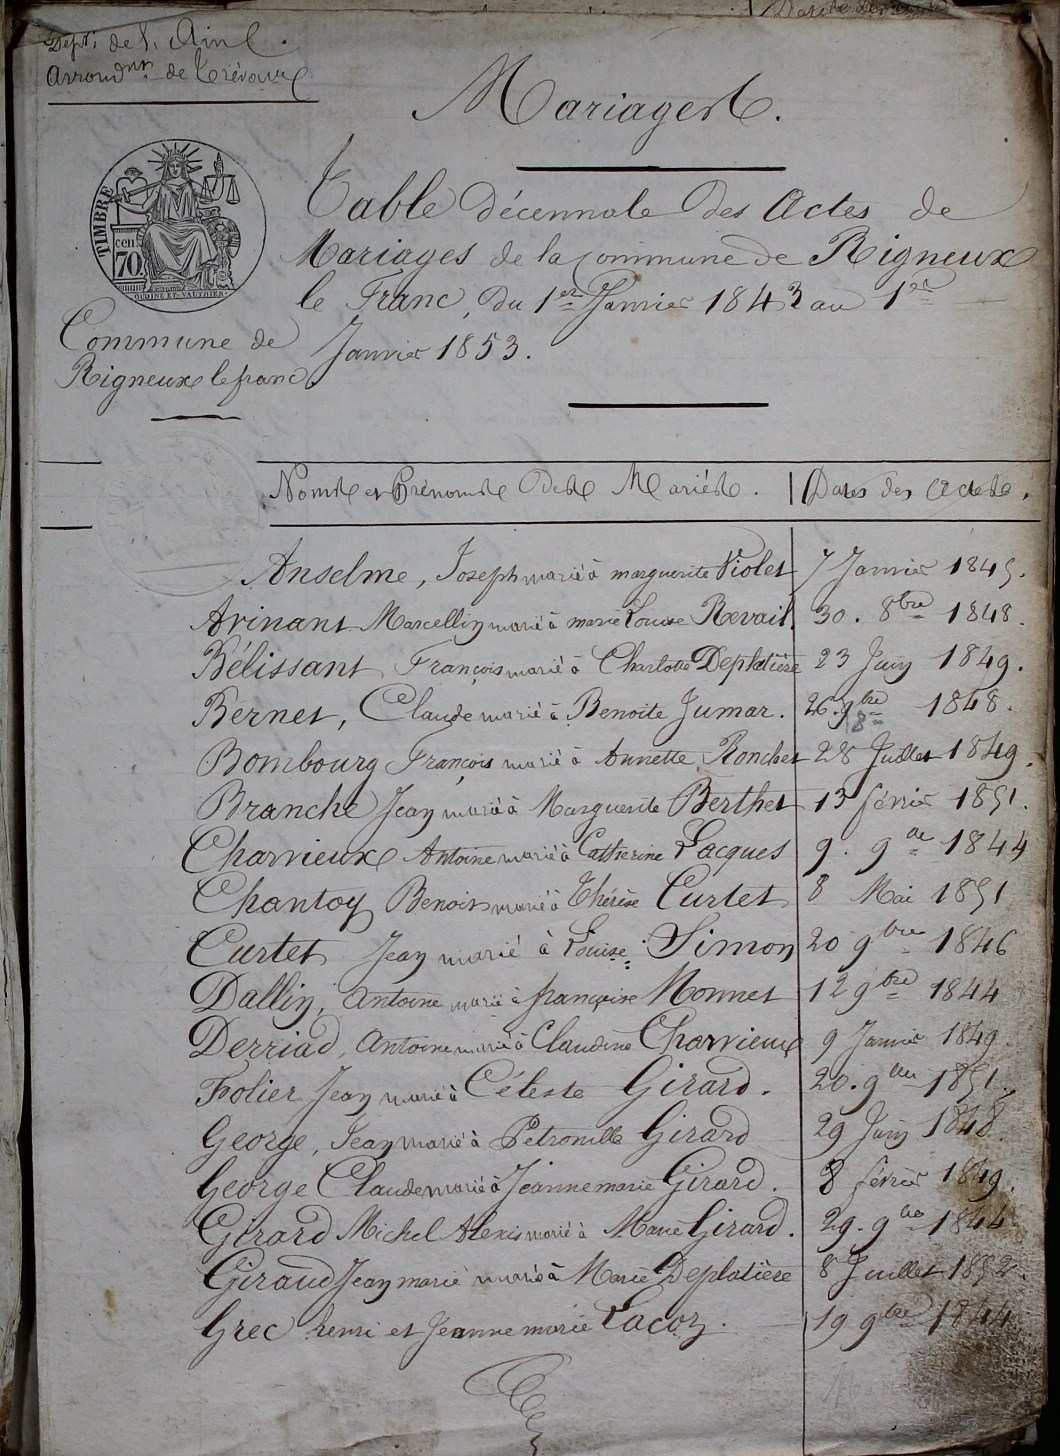 Dépt. de l'Ain
Arrondnt. de Trévoux
Mariages.
TIMBRE
cen.
70
OUDINE ET VAUTHIER
Table décennale des Actes de
Mariages de la commune de Rigneux
le Franc, du 1er Janvier 1843 au 1er
Janvier 1853.
Commune de
Rigneux le franc
Noms et Prénoms des Mariés. Dates des Actes.
Anselme, Joseph marié à marguerite Violet 7 Janvier 1845.
Avinant Marcellin marié à marie Louise Revail. 30. 8bre 1848.
Bélissant François marié à Charlotte Deplatière 23 Juin 1849.
Bernet, Claude marié à Benoite Jumar. 26. 9bre 1848.
8
Bombourg François marié à Annette Ronchet 28 Juillet 1849.
Branche Jean marié à Marguerite Berthet 13 février 1851.
Charvieux Antoine marié à Catherine Lacques 9. 9bre 1844
Chantoy Benoit marié à Thérèse Curtet 8 Mai 1851
Curtet Jean marié à Louise Simon 20 9bre 1846
Dallin, Antoine marié à françoise Monnet 12 9bre 1844
Derriad, Antoine marié à Claudine Charvieux 9 Janvier 1849.
Folier Jean marié à Céleste Girard. 20. 9bre 1851.
George, Jean marié à Pétronille Girard 29 Juin 1848.
George Claude marié à Jeanne marie Girard. 8 février 1849.
Girard Michel Alexis marié à Marie Girard. 29. 9bre 1844
Giraud Jean marie marié à Marie Deplatière 8 Juillet 1852.
Grec henri et Jeanne marie Lacoz. 19 9bre 1844